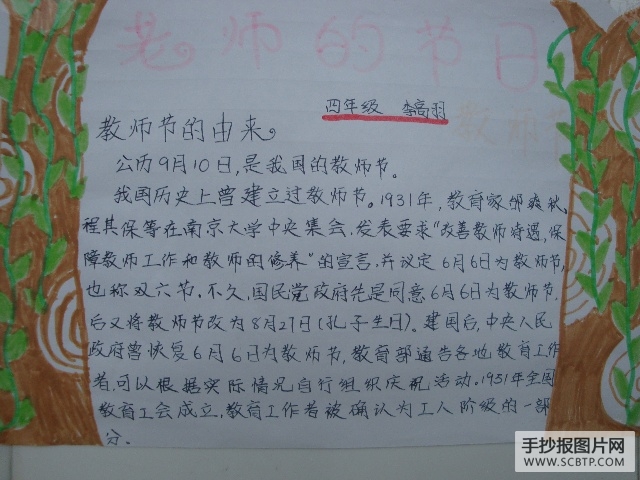 老师的节日
四年级 李高羽
教师节
教师节的由来。
公历9月10日,是我国的教师节。
我国历史上曾建立过教师节。1931年,教育家邰爽秋、
程其保等在南京大学中央集会,发表要求"改善教师待遇,保
障教师工作和教师的修养"的宣言,并议定6月6日为教师节,
也称双六节。不久,国民党政府先是同意6月6日为教师节,
后又将教师节改为8月27日(孔子生日)。建国后,中央人民
政府曾恢复6月6日为教师节,教育部通告各地教育工作
者,可以根据实际情况自行组织庆祝活动。1951年全国
教育工会成立,教育工作者被确认为工人阶级的一部
分。
手抄报图片网
WWW.SCBTP.COM